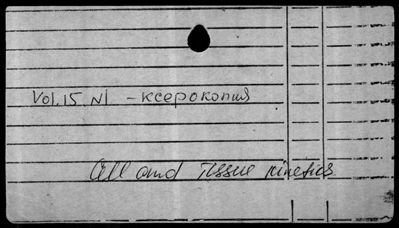 Vol.15 N1 - ксерокопия
Cell and Tissue kinetics